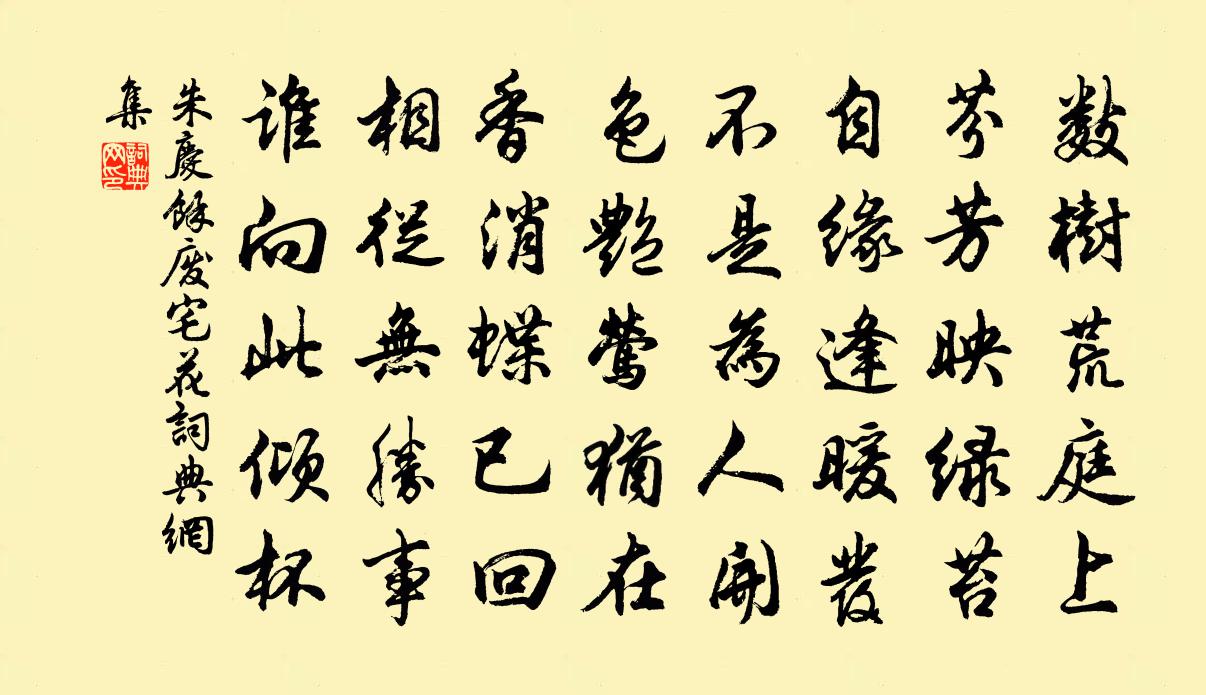 数樹荒庭上
芬芳映緑苔
自緣逢暖發
不是為人開
色艷鶯猶在
香消蝶已回
相從無勝事
誰向此傾杯
朱慶餘廢宅花詞典網
集
詞典
网印